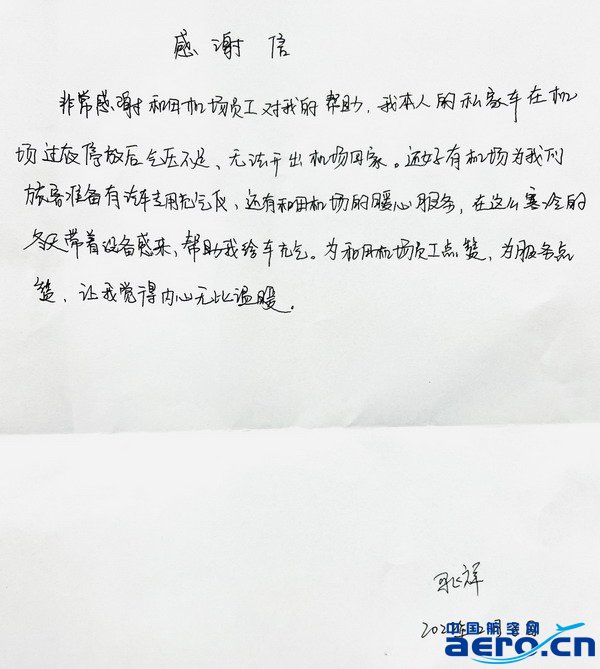 感谢信
非常感谢和田机场员工对我的帮助，我本人的私家车在机
场过夜停放后气压不足、无法开出机场回家。还好有机场为我们
旅客准备有汽车专用充气仪、还有和田机场的暖心服务，在这么寒冷的
冬天带着设备感来，帮助我给车充气。为和田机场员工点赞，为服务点
赞，让我觉得内心无比温暖。
祥
202
中国航空网
aero.cn